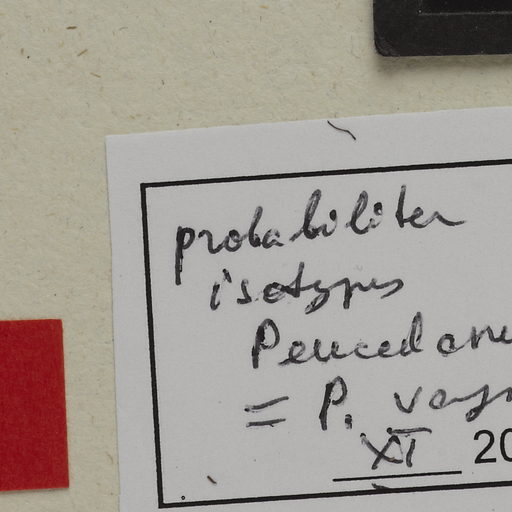 probabiliter
isotypus
Peucedanu
= P. vag
XI 20